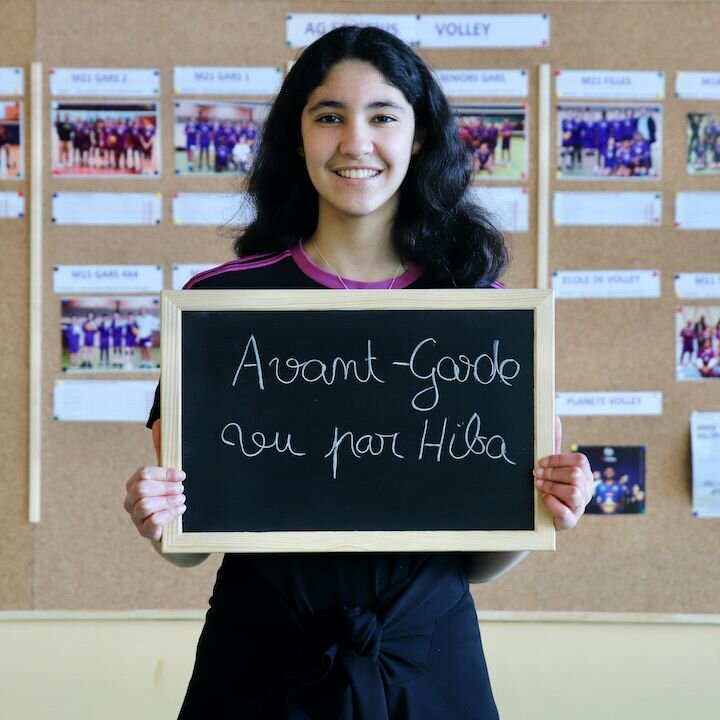 VOLLEY
M21 GARS 2
M21 GARS 1
SENIORS GARS
M21 FILLES
M15 GARS 4X4
ECOLE DE VOLLEY
PLANETE VOLLEY
Avant-Garde
vu par Hiba